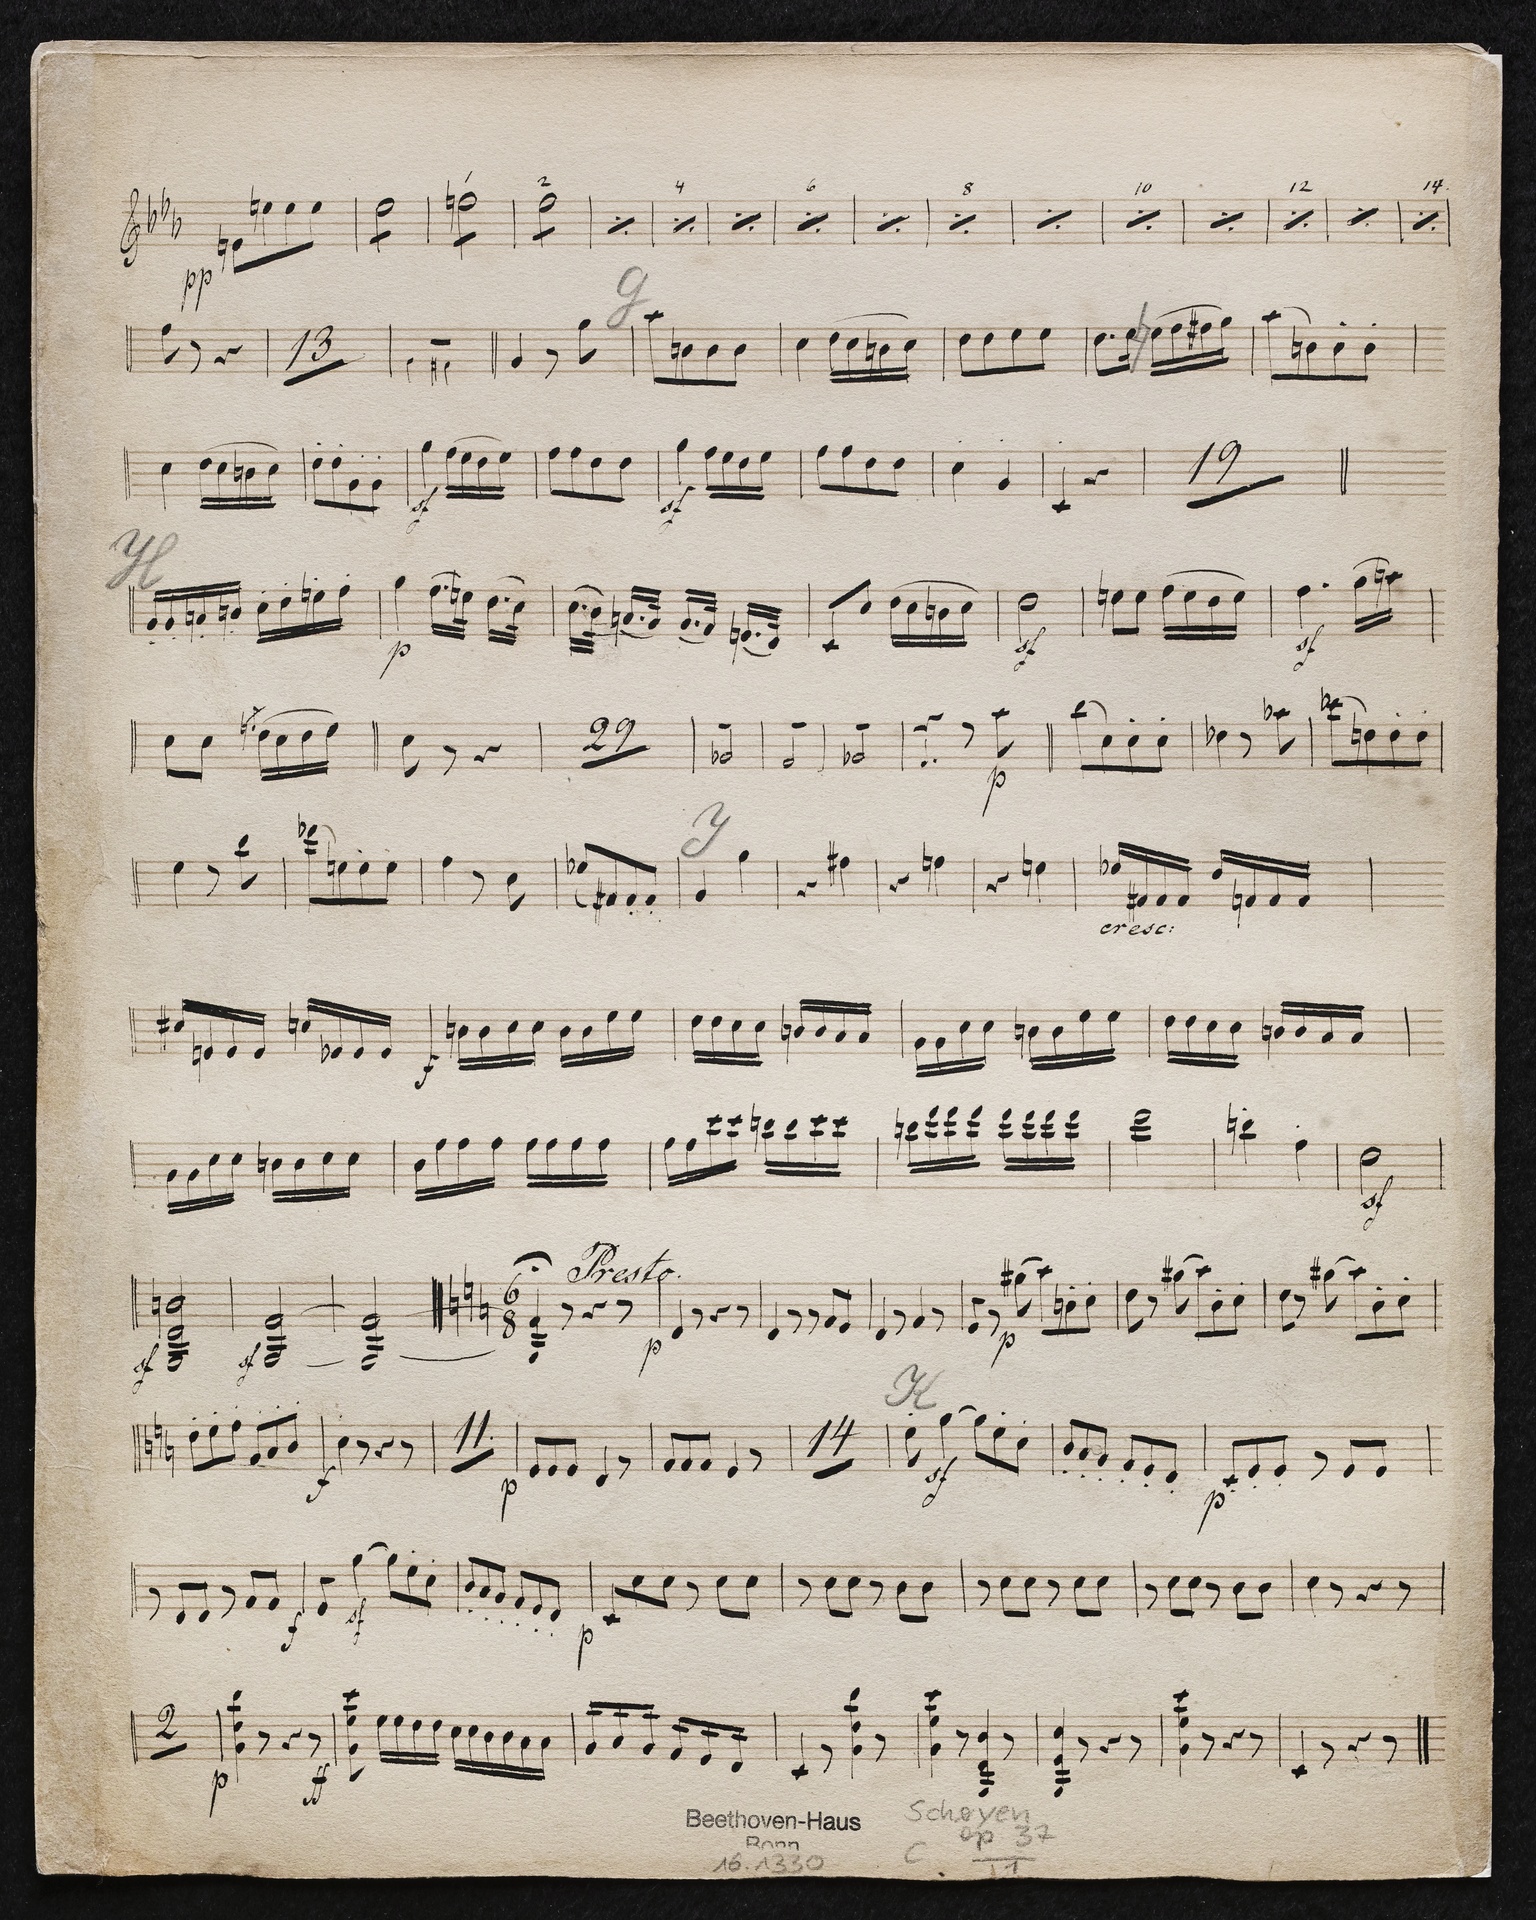 pp 1 2 4 6 8 10 12 14.
13 G
19
sf sf
H
p sf sf
29 p
Y
cresc:
f
sf
Presto.
sf sf 6 8 p p
K
f 11. p 14 sf p
f sf p
2 p ff
Beethoven-Haus
Bonn
16.1330
Schøyen
op 37
C II